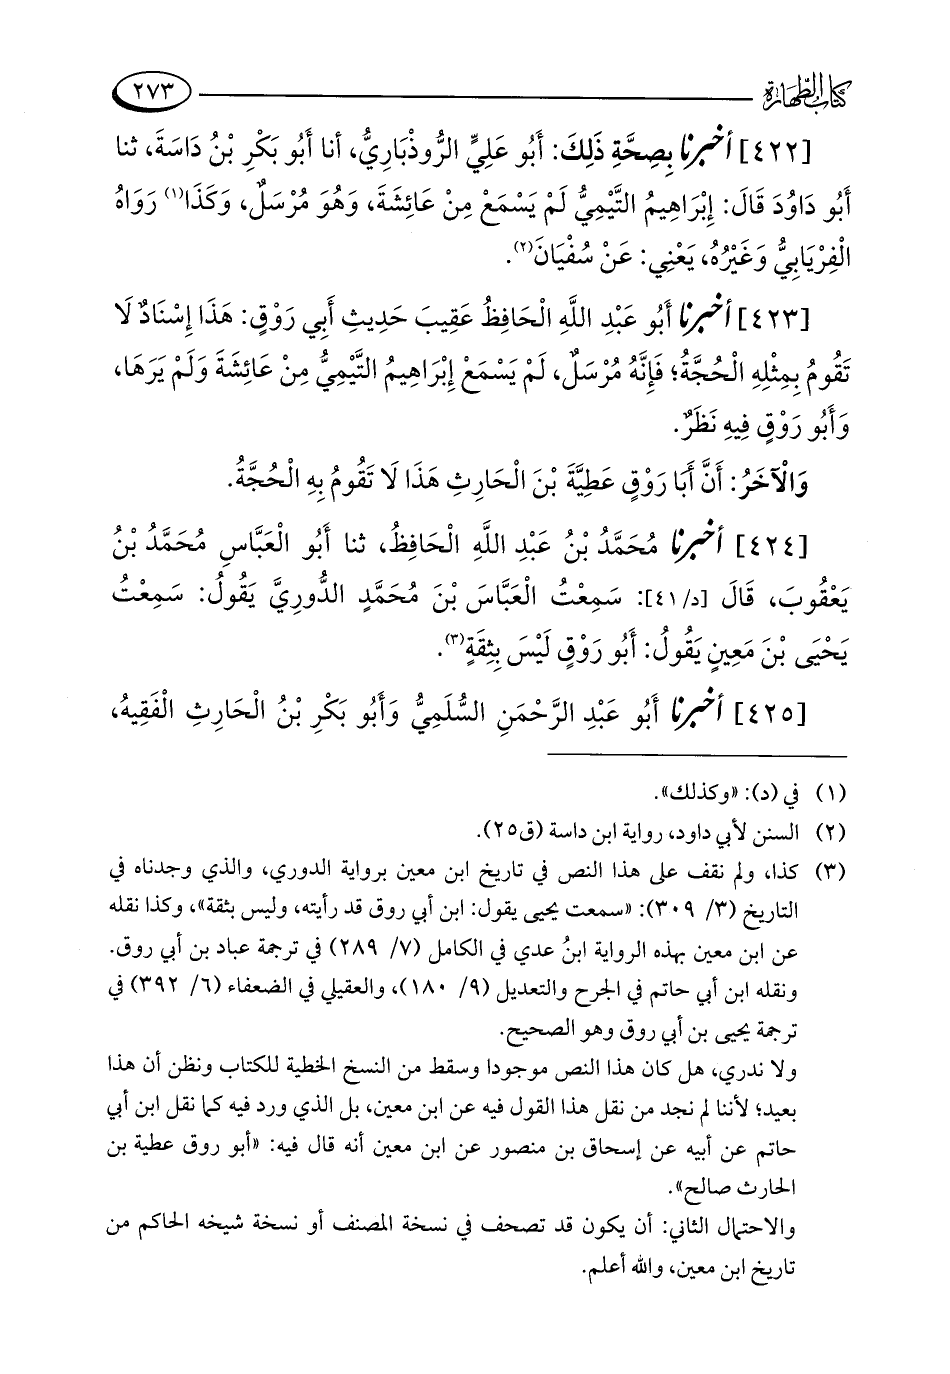 كتاب الطهارة ٢٧٣
[٤٢٢] أخبرنا بِصِحَّةِ ذَلِكَ: أَبُو عَلِيٍّ الرُّوذْبَارِيُّ، أنا أَبُو بَكْرِ بْنُ دَاسَةَ، ثنا
أَبُو دَاوُدَ قَالَ: إِبْرَاهِيمُ التَّيْمِيُّ لَمْ يَسْمَعْ مِنْ عَائِشَةَ، وَهُوَ مُرْسَلٌ، وَكَذَا(١) رَوَاهُ
الْفِرْيَابِيُّ وَغَيْرُهُ، يَعْنِي: عَنْ سُفْيَانَ(٢).
[٤٢٣] أخبرنا أَبُو عَبْدِ اللَّهِ الْحَافِظُ عَقِيبَ حَدِيثِ أَبِي رَوْقٍ: هَذَا إِسْنَادٌ لَا
تَقُومُ بِمِثْلِهِ الْحُجَّةُ؛ فَإِنَّهُ مُرْسَلٌ، لَمْ يَسْمَعْ إِبْرَاهِيمُ التَّيْمِيُّ مِنْ عَائِشَةَ وَلَمْ يَرَهَا،
وَأَبُو رَوْقٍ فِيهِ نَظَرٌ.
وَالْآخَرُ: أَنَّ أَبَا رَوْقٍ عَطِيَّةَ بْنَ الْحَارِثِ هَذَا لَا تَقُومُ بِهِ الْحُجَّةُ.
[٤٢٤] أخبرنا مُحَمَّدُ بْنُ عَبْدِ اللَّهِ الْحَافِظُ، ثنا أَبُو الْعَبَّاسِ مُحَمَّدُ بْنُ
يَعْقُوبَ، قَالَ [د/٤١]: سَمِعْتُ الْعَبَّاسَ بْنَ مُحَمَّدٍ الدُّورِيَّ يَقُولُ: سَمِعْتُ
يَحْيَى بْنَ مَعِينٍ يَقُولُ: أَبُو رَوْقٍ لَيْسَ بِثِقَةٍ(٣).
[٤٢٥] أخبرنا أَبُو عَبْدِ الرَّحْمَنِ السُّلَمِيُّ وَأَبُو بَكْرِ بْنُ الْحَارِثِ الْفَقِيهُ،
(١) في (د): «وكذلك».
(٢) السنن لأبي داود، رواية ابن داسة (ق٢٥).
(٣) كذا، ولم نقف على هذا النص في تاريخ ابن معين برواية الدوري، والذي وجدناه في
التاريخ (٣/ ٣٠٩): «سمعت يحيى يقول: ابن أبي روق قد رأيته، وليس بثقة»، وكذا نقله
عن ابن معين بهذه الرواية ابنُ عدي في الكامل (٧/ ٢٨٩) في ترجمة عباد بن أبي روق.
ونقله ابن أبي حاتم في الجرح والتعديل (٩/ ١٨٠)، والعقيلي في الضعفاء (٦/ ٣٩٢) في
ترجمة يحيى بن أبي روق وهو الصحيح.
ولا ندري، هل كان هذا النص موجودا وسقط من النسخ الخطية للكتاب ونظن أن هذا
بعيد؛ لأننا لم نجد من نقل هذا القول فيه عن ابن معين، بل الذي ورد فيه كما نقل ابن أبي
حاتم عن أبيه عن إسحاق بن منصور عن ابن معين أنه قال فيه: «أبو روق عطية بن
الحارث صالح».
والاحتمال الثاني: أن يكون قد تصحف في نسخة المصنف أو نسخة شيخه الحاكم من
تاريخ ابن معين، والله أعلم.